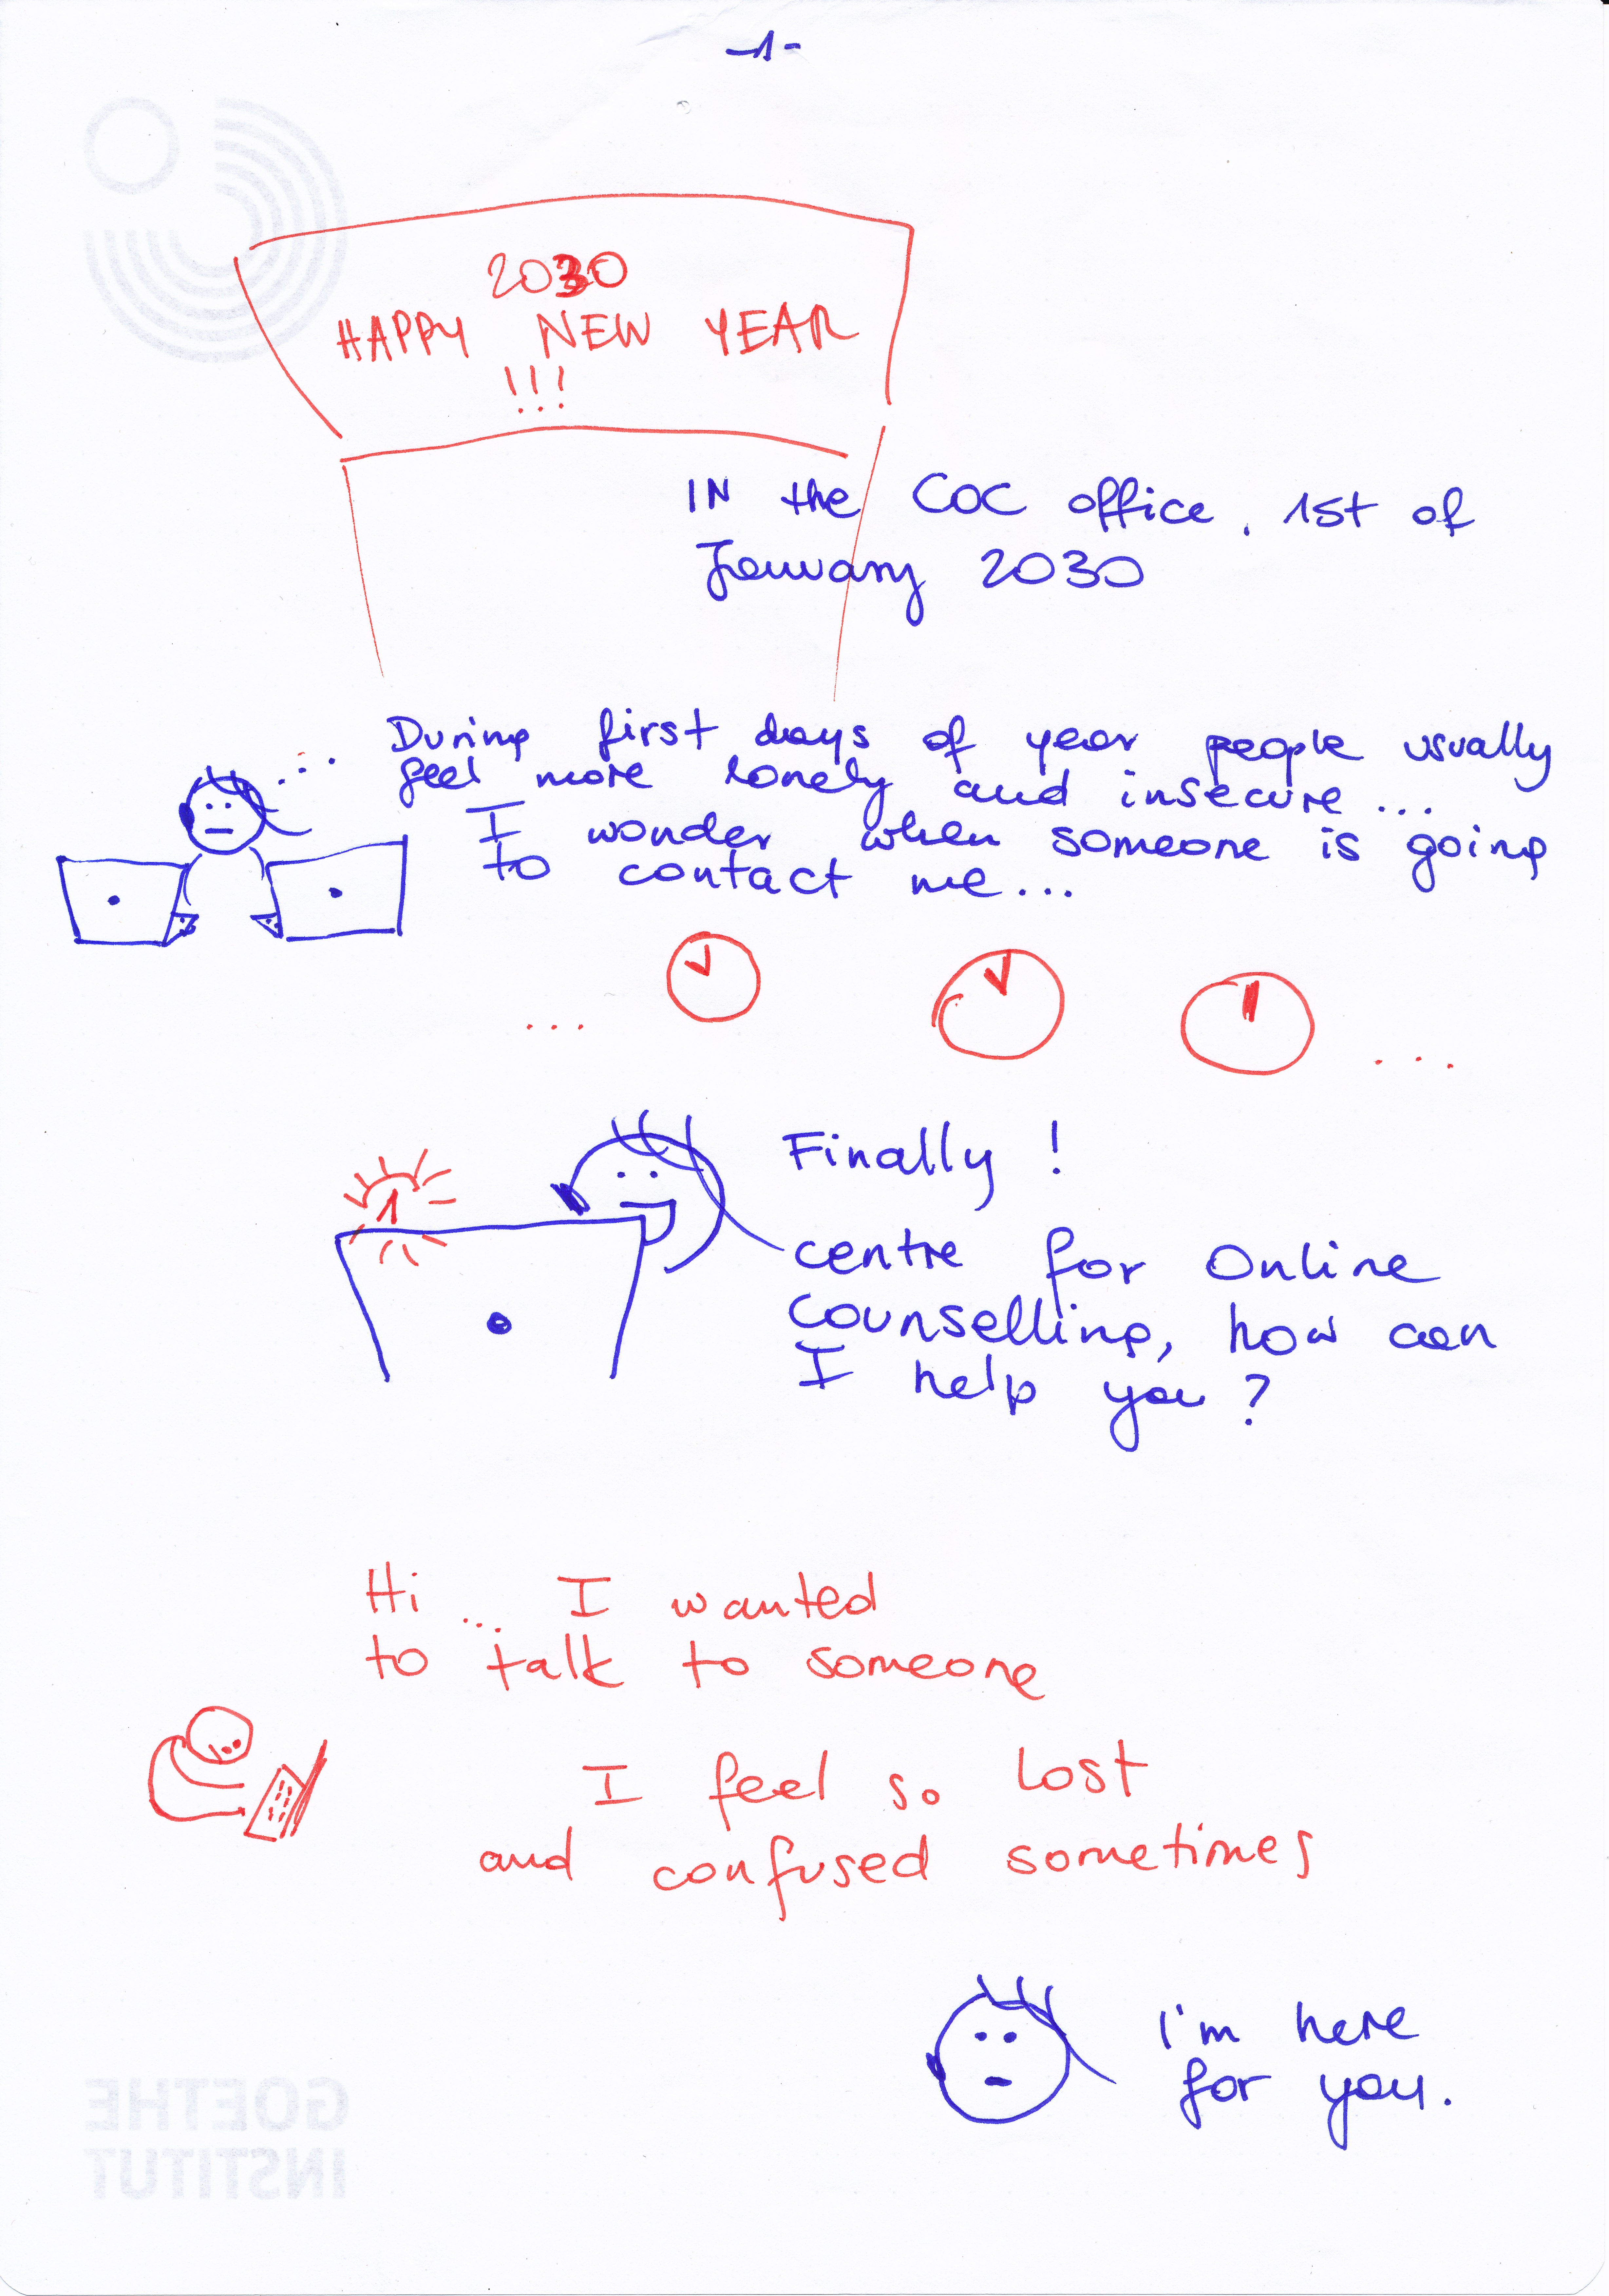 -1-
2030
HAPPY NEW YEAR
!!!
IN the COC office. 1st of
January 2030
During first days of year people usually
feel more lonely and insecure...
I wonder when someone is going
to contact me...
...
...
Finally!
1
centre for Online
Counselling, how can
I help you?
Hi ... I wanted
to talk to someone
I feel so lost
and confused sometimes
I'm here
for you.
GOETHE
INSTITUT